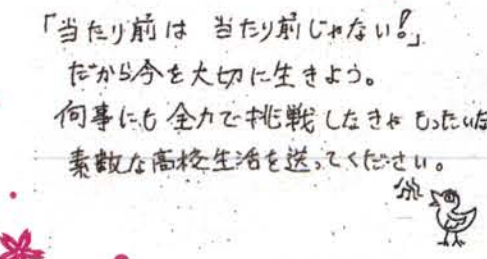 「当たり前は 当たり前じゃない!」
だから今を大切に生きよう。
何事にも全力で挑戦しなきゃもったいな
素敵な高校生活を送ってください。